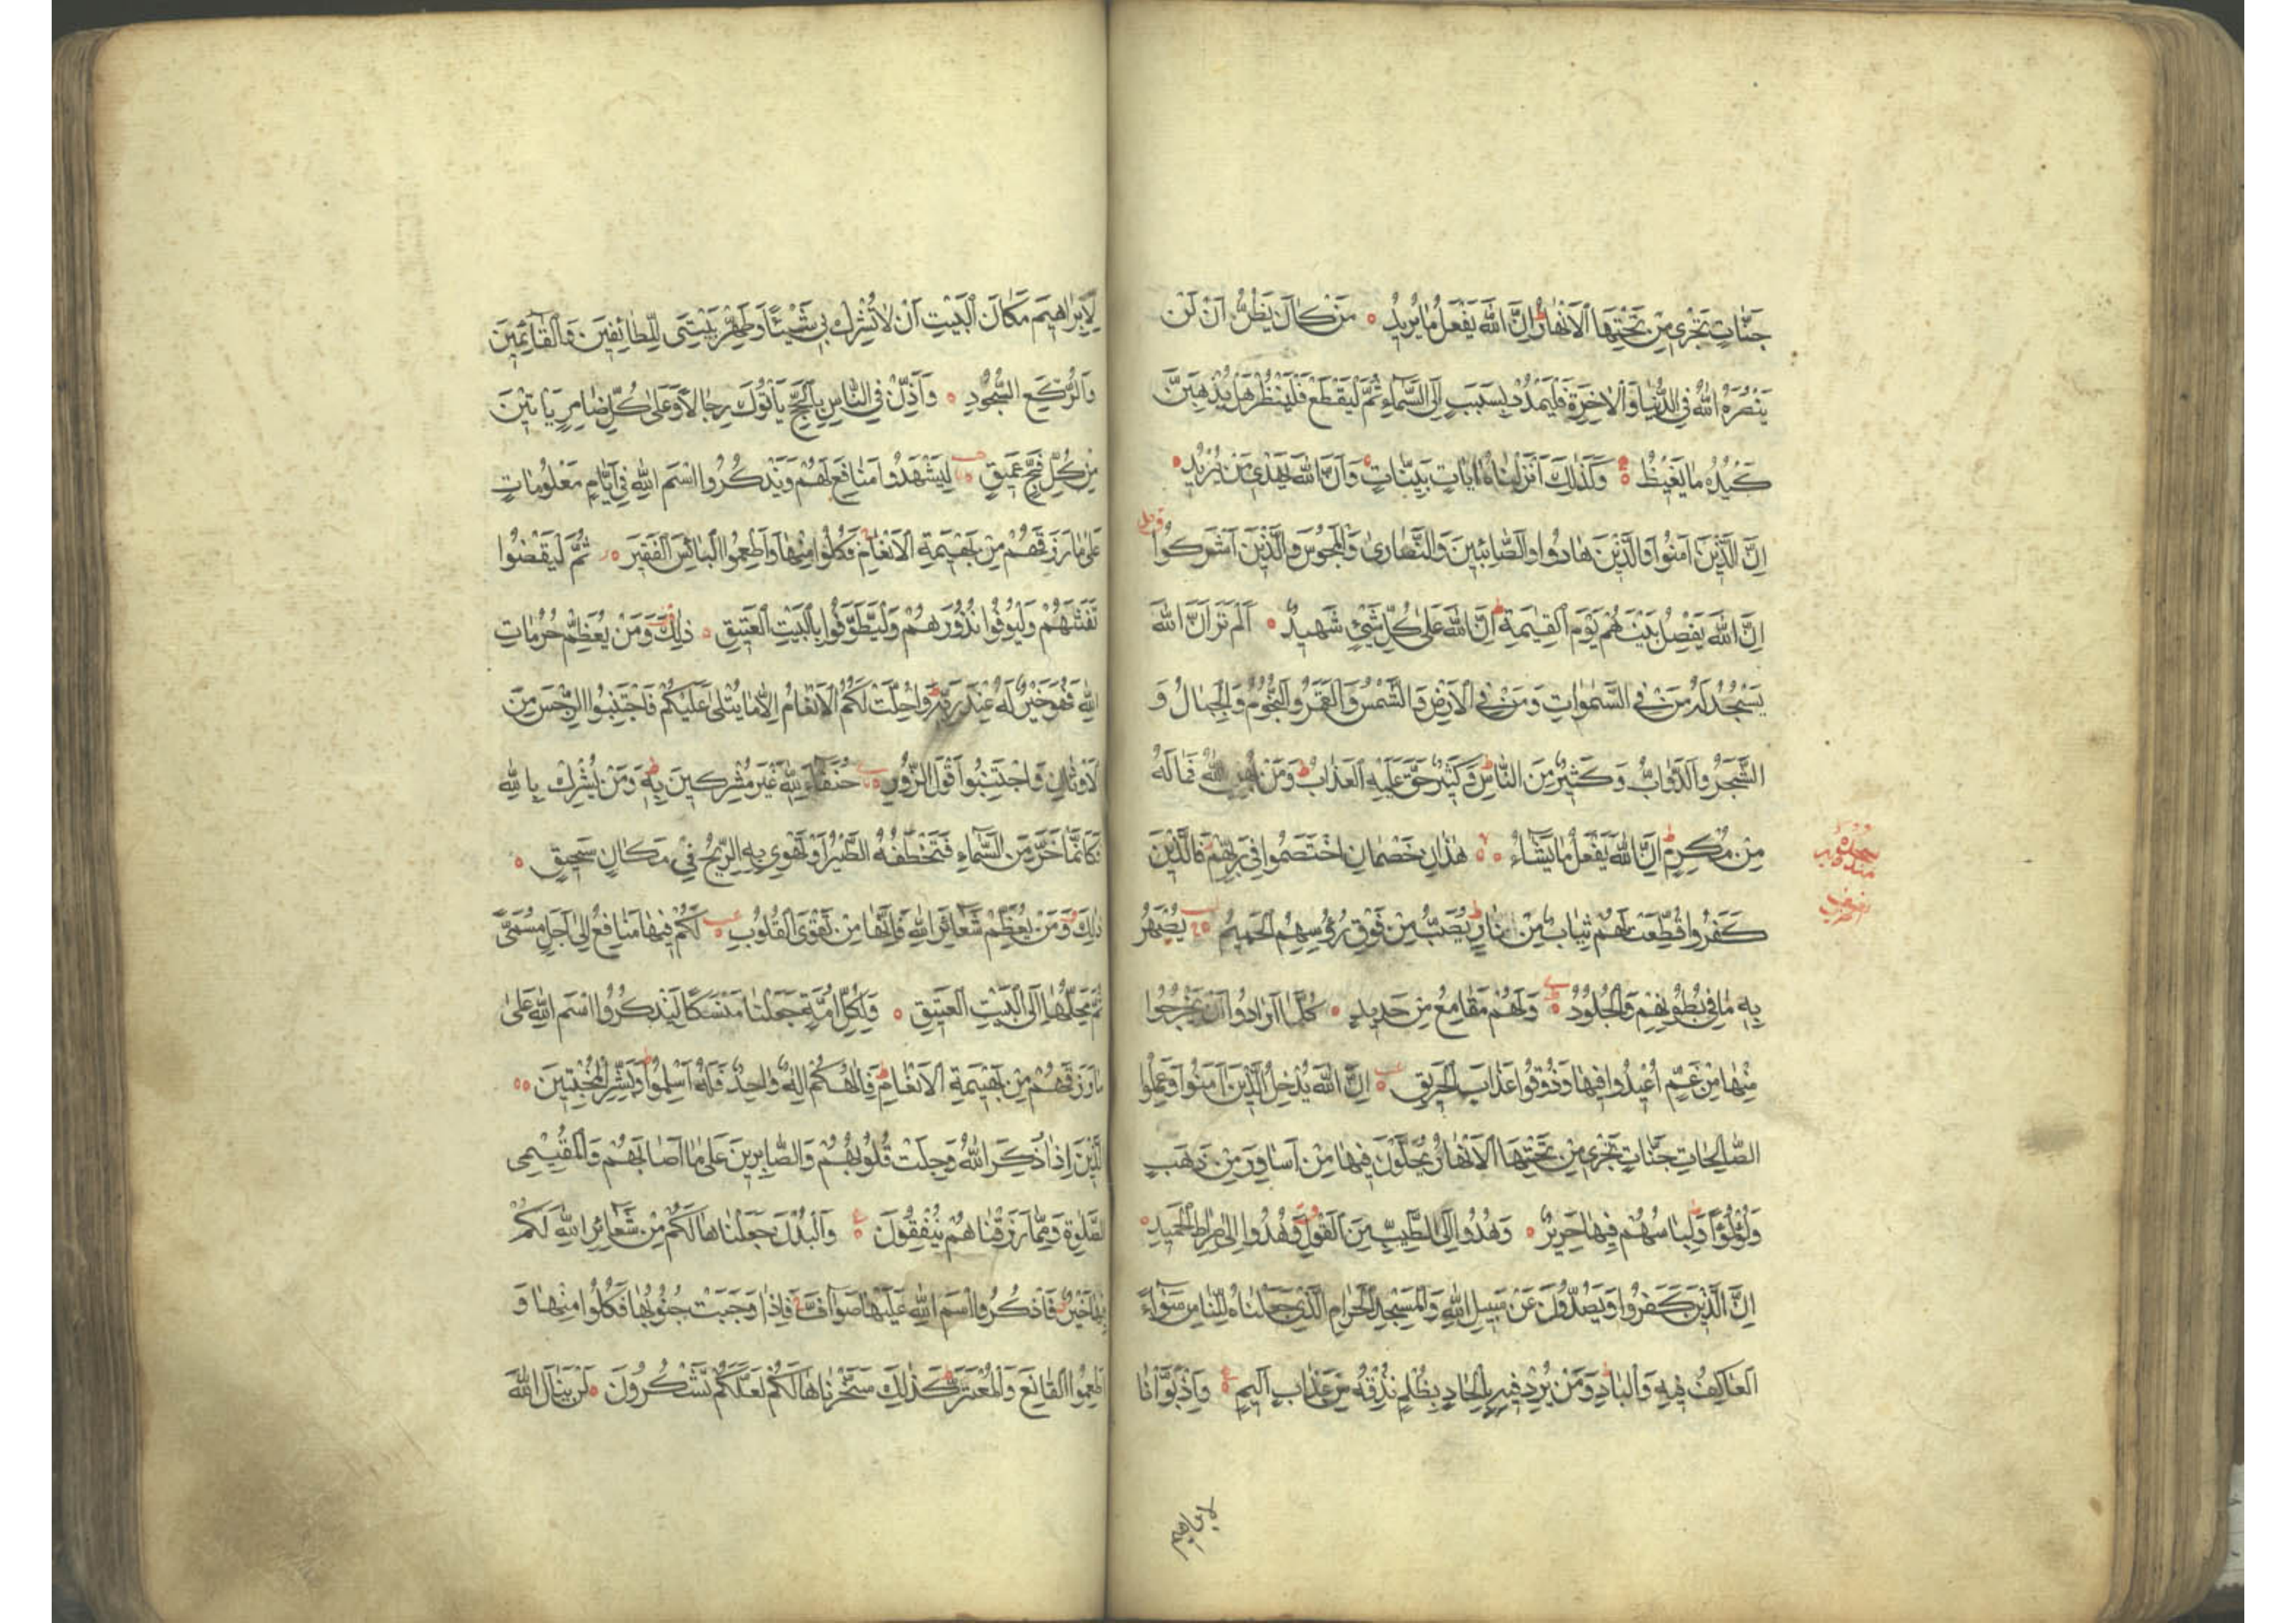 جَنَّاتٍ تَجْرِي مِنْ تَحْتِهَا الْاَنْهَارُ اِنَّ اللّٰهَ يَفْعَلُ مَا يُرِيدُ مَنْ كَانَ يَظُنُّ اَنْ لَنْ
يَنْصُرَهُ اللّٰهُ فِي الدُّنْيَا وَالْاٰخِرَةِ فَلْيَمْدُدْ بِسَبَبٍ اِلَى السَّمَاءِ ثُمَّ لْيَقْطَعْ فَلْيَنْظُرْ هَلْ يُذْهِبَنَّ
كَيْدُهُ مَا يَغِيظُ وَكَذٰلِكَ اَنْزَلْنَاهُ اٰيَاتٍ بَيِّنَاتٍ وَاَنَّ اللّٰهَ يَهْدِي مَنْ يُرِيدُ
اِنَّ الَّذِينَ اٰمَنُوا وَالَّذِينَ هَادُوا وَالصَّابِئِينَ وَالنَّصَارٰى وَالْمَجُوسَ وَالَّذِينَ اَشْرَكُوا
اِنَّ اللّٰهَ يَفْصِلُ بَيْنَهُمْ يَوْمَ الْقِيٰمَةِ اِنَّ اللّٰهَ عَلٰى كُلِّ شَيْءٍ شَهِيدٌ اَلَمْ تَرَ اَنَّ اللّٰهَ
يَسْجُدُ لَهُ مَنْ فِي السَّمٰوَاتِ وَمَنْ فِي الْاَرْضِ وَالشَّمْسُ وَالْقَمَرُ وَالنُّجُومُ وَالْجِبَالُ وَ
الشَّجَرُ وَالدَّوَابُّ وَكَثِيرٌ مِنَ النَّاسِ وَكَثِيرٌ حَقَّ عَلَيْهِ الْعَذَابُ وَمَنْ يُهِنِ اللّٰهُ فَمَا لَهُ
مِنْ مُكْرِمٍ اِنَّ اللّٰهَ يَفْعَلُ مَا يَشَاءُ هٰذَانِ خَصْمَانِ اخْتَصَمُوا فِي رَبِّهِمْ فَالَّذِينَ
كَفَرُوا قُطِّعَتْ لَهُمْ ثِيَابٌ مِنْ نَارٍ يُصَبُّ مِنْ فَوْقِ رُؤُسِهِمُ الْحَمِيمُ يُصْهَرُ
بِهِ مَا فِي بُطُونِهِمْ وَالْجُلُودُ وَلَهُمْ مَقَامِعُ مِنْ حَدِيدٍ كُلَّمَا اَرَادُوا اَنْ يَخْرُجُوا
مِنْهَا مِنْ غَمٍّ اُعِيدُوا فِيهَا وَذُوقُوا عَذَابَ الْحَرِيقِ اِنَّ اللّٰهَ يُدْخِلُ الَّذِينَ اٰمَنُوا وَعَمِلُوا
الصَّالِحَاتِ جَنَّاتٍ تَجْرِي مِنْ تَحْتِهَا الْاَنْهَارُ يُحَلَّوْنَ فِيهَا مِنْ اَسَاوِرَ مِنْ ذَهَبٍ
وَلُؤْلُؤًا وَلِبَاسُهُمْ فِيهَا حَرِيرٌ وَهُدُوا اِلَى الطَّيِّبِ مِنَ الْقَوْلِ وَهُدُوا اِلٰى صِرَاطِ الْحَمِيدِ
اِنَّ الَّذِينَ كَفَرُوا وَيَصُدُّونَ عَنْ سَبِيلِ اللّٰهِ وَالْمَسْجِدِ الْحَرَامِ الَّذِي جَعَلْنَاهُ لِلنَّاسِ سَوَاءً
الْعَاكِفُ فِيهِ وَالْبَادِ وَمَنْ يُرِدْ فِيهِ بِاِلْحَادٍ بِظُلْمٍ نُذِقْهُ مِنْ عَذَابٍ اَلِيمٍ وَاِذْ بَوَّاْنَا
لِاِبْرَاهِيمَ
لِاِبْرَاهِيمَ مَكَانَ الْبَيْتِ اَنْ لَا تُشْرِكْ بِي شَيْئًا وَطَهِّرْ بَيْتِيَ لِلطَّائِفِينَ وَالْقَائِمِينَ
وَالرُّكَّعِ السُّجُودِ وَاَذِّنْ فِي النَّاسِ بِالْحَجِّ يَاْتُوكَ رِجَالًا وَعَلٰى كُلِّ ضَامِرٍ يَاْتِينَ
مِنْ كُلِّ فَجٍّ عَمِيقٍ لِيَشْهَدُوا مَنَافِعَ لَهُمْ وَيَذْكُرُوا اسْمَ اللّٰهِ فِي اَيَّامٍ مَعْلُومَاتٍ
عَلٰى مَا رَزَقَهُمْ مِنْ بَهِيمَةِ الْاَنْعَامِ فَكُلُوا مِنْهَا وَاَطْعِمُوا الْبَائِسَ الْفَقِيرَ ثُمَّ لْيَقْضُوا
تَفَثَهُمْ وَلْيُوفُوا نُذُورَهُمْ وَلْيَطَّوَّفُوا بِالْبَيْتِ الْعَتِيقِ ذٰلِكَ وَمَنْ يُعَظِّمْ حُرُمَاتِ
اللّٰهِ فَهُوَ خَيْرٌ لَهُ عِنْدَ رَبِّهِ وَاُحِلَّتْ لَكُمُ الْاَنْعَامُ اِلَّا مَا يُتْلٰى عَلَيْكُمْ فَاجْتَنِبُوا الرِّجْسَ مِنَ
الْاَوْثَانِ وَاجْتَنِبُوا قَوْلَ الزُّورِ حُنَفَاءَ لِلّٰهِ غَيْرَ مُشْرِكِينَ بِهِ وَمَنْ يُشْرِكْ بِاللّٰهِ
فَكَاَنَّمَا خَرَّ مِنَ السَّمَاءِ فَتَخْطَفُهُ الطَّيْرُ اَوْ تَهْوِي بِهِ الرِّيحُ فِي مَكَانٍ سَحِيقٍ
ذٰلِكَ وَمَنْ يُعَظِّمْ شَعَائِرَ اللّٰهِ فَاِنَّهَا مِنْ تَقْوَى الْقُلُوبِ لَكُمْ فِيهَا مَنَافِعُ اِلٰى اَجَلٍ مُسَمًّى
ثُمَّ مَحِلُّهَا اِلَى الْبَيْتِ الْعَتِيقِ وَلِكُلِّ اُمَّةٍ جَعَلْنَا مَنْسَكًا لِيَذْكُرُوا اسْمَ اللّٰهِ عَلٰى
مَا رَزَقَهُمْ مِنْ بَهِيمَةِ الْاَنْعَامِ فَاِلٰهُكُمْ اِلٰهٌ وَاحِدٌ فَلَهُ اَسْلِمُوا وَبَشِّرِ الْمُخْبِتِينَ
الَّذِينَ اِذَا ذُكِرَ اللّٰهُ وَجِلَتْ قُلُوبُهُمْ وَالصَّابِرِينَ عَلٰى مَا اَصَابَهُمْ وَالْمُقِيمِي
الصَّلٰوةِ وَمِمَّا رَزَقْنَاهُمْ يُنْفِقُونَ وَالْبُدْنَ جَعَلْنَاهَا لَكُمْ مِنْ شَعَائِرِ اللّٰهِ لَكُمْ
فِيهَا خَيْرٌ فَاذْكُرُوا اسْمَ اللّٰهِ عَلَيْهَا صَوَافَّ فَاِذَا وَجَبَتْ جُنُوبُهَا فَكُلُوا مِنْهَا وَ
اَطْعِمُوا الْقَانِعَ وَالْمُعْتَرَّ كَذٰلِكَ سَخَّرْنَاهَا لَكُمْ لَعَلَّكُمْ تَشْكُرُونَ لَنْ يَنَالَ اللّٰهَ